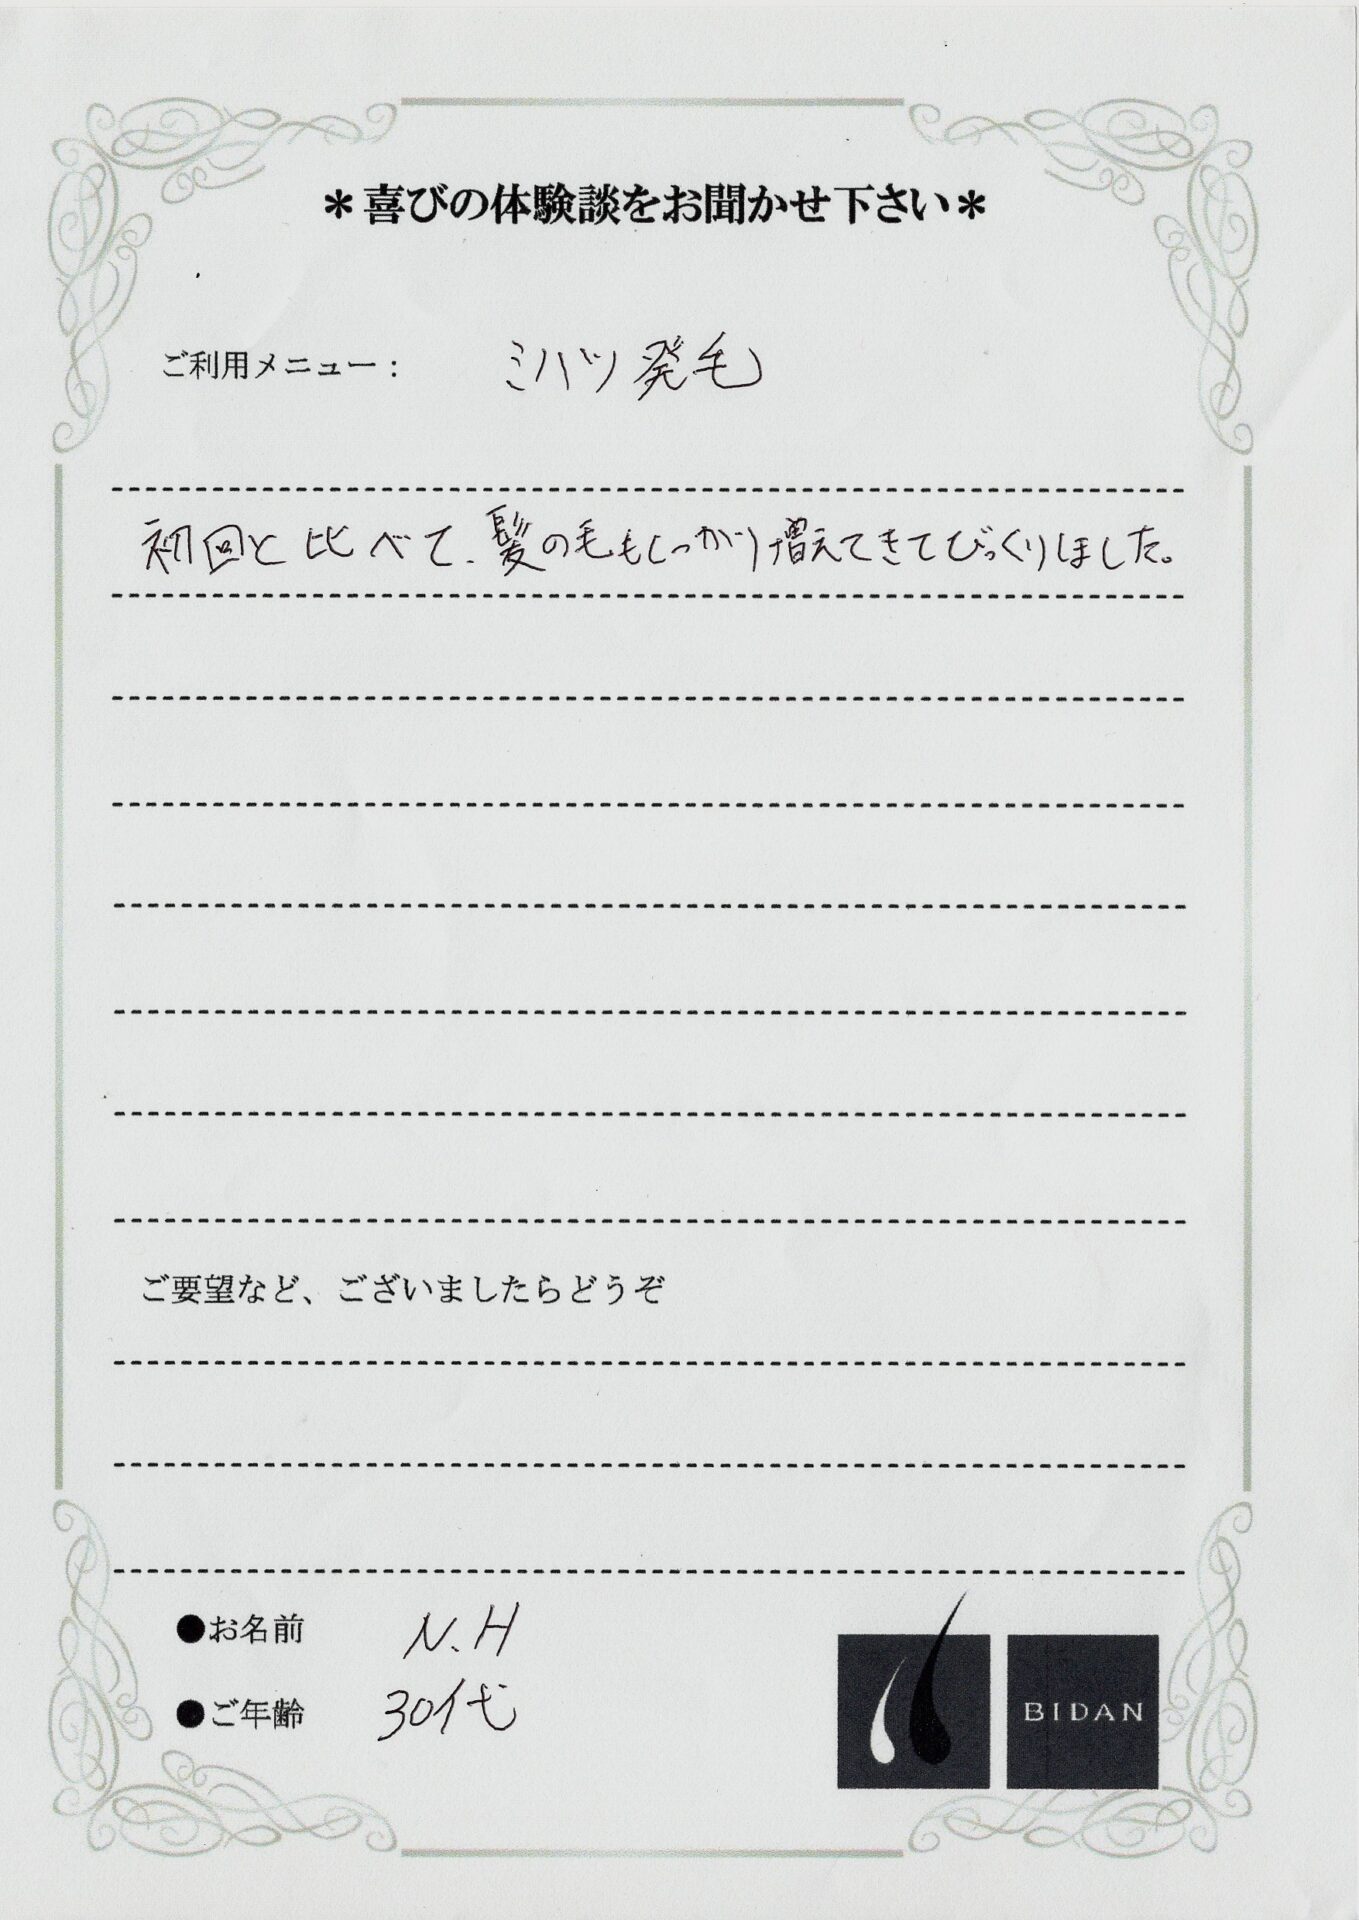 ＊喜びの体験談をお聞かせ下さい＊
ご利用メニュー： ミハツ発毛
初回と比べて、髪の毛もしっかり増えてきてびっくりしました。
ご要望など、ございましたらどうぞ
●お名前 N.H
●ご年齢 30代
BIDAN